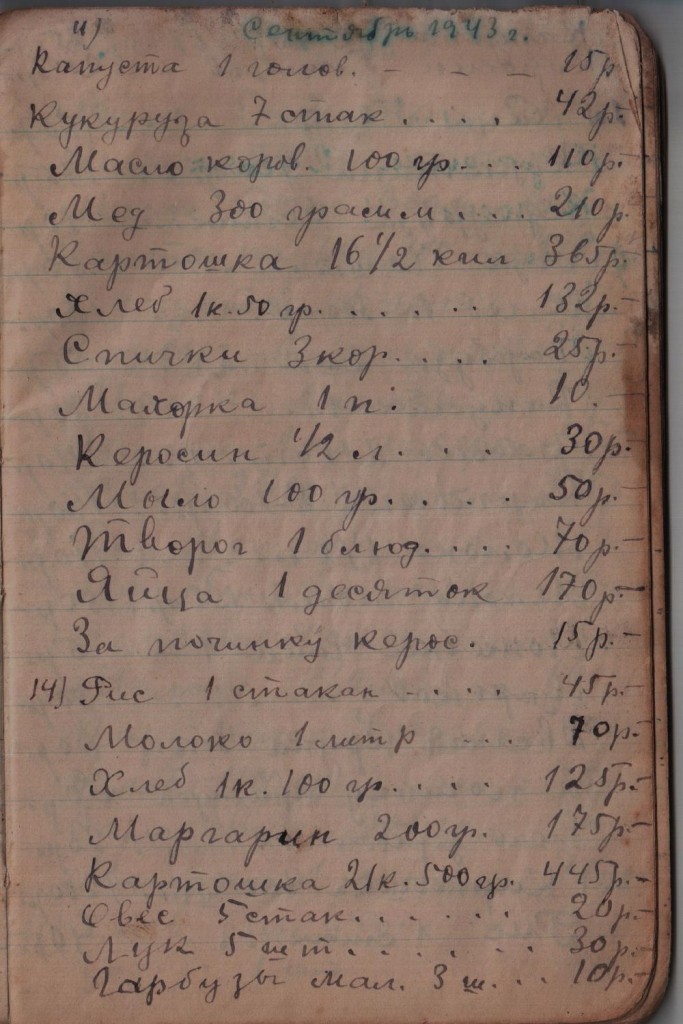 11) Сентябрь 1943 г.
Капуста 1 голов. - - - 15р
Кукуруза 7 стак . . . . 42р.-
Масло коров. 100 гр. . . 110р.-
Мед 300 грамм . . . 210р.
Картошка 16 1/2 кил 365р.
Хлеб 1к. 50 гр. . . . . . 132р.-
Спички 3 кор. . . . 25р.-
Махорка 1 п. 10.-
Керосин 1/2 л. . . . 30р.-
Мыло 100 гр. . . . . 50р.-
Творог 1 блюд. . . . 70р.-
Яйца 1 десяток 170р.-
За починку керос. 15р.-
14) Рис 1 стакан . . . . 45р.-
Молоко 1 литр . . . 70р.-
Хлеб 1к. 100 гр. . . . 125р.-
Маргарин 200гр. 175р.-
Картошка 21к. 500гр. 445р.-
Овес 5 стак. . . . . . 20р.-
Лук 5 шт. . . . . . 30р.-
Гарбузы мал. 3 ш. . . 10р.-